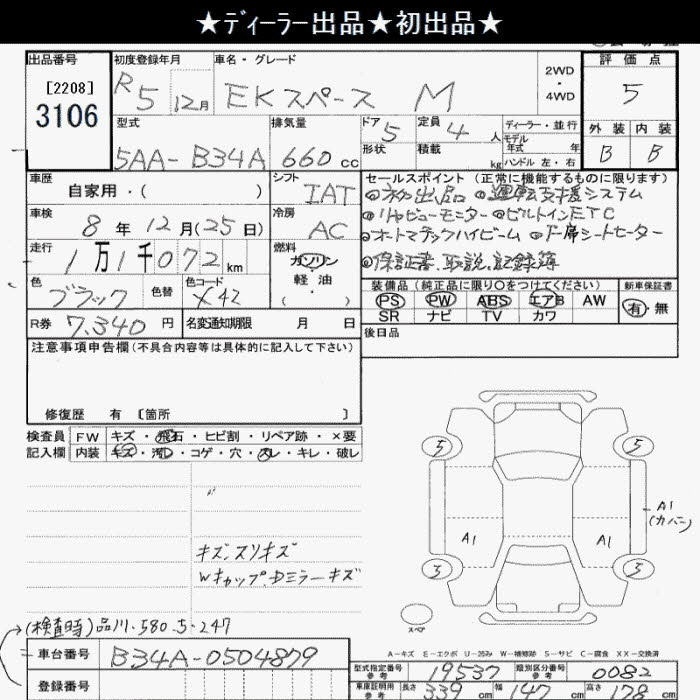 ★ディーラー出品★初出品★
出品番号 初度登録年月 車名・グレード 評価点
[2208] R5 12月 EKスペース M 2WD・4WD 5
3106
型式 排気量 ドア 5 定員 4人 ディーラー・並行 外装 内装
5AA-B34A 660cc 形状 積載 kg モデル年式 年 ハンドル 左・右 B B
車歴 自家用・( ) シフト IAT セールスポイント (正常に機能するものに限ります)
◎初出品 ◎運転支援システム
車検 8年12月(25日) 冷房 AC ◎リヤビューモニター ◎ビルトインETC
◎オートマチックハイビーム ◎F席シートヒーター
走行 1万1千072km 燃料 ガソリン・軽油・( ) ◎保証書、取説、記録簿
色 ブラック 色替 色コード X42 装備品 (純正品に限り〇をつけてください) 新車保証書
PS PW ABS エアB AW 有・無
R券 7,340円 名変通知期限 月 日 SR ナビ TV カワ
注意事項申告欄 (不具合内容等は具体的に記入して下さい) 後日品
修復歴 有 [箇所 ]
検査員 FW キズ・飛石・ヒビ割・リペア跡・×要
記入欄 内装 キズ・汚レ・コゲ・穴・スレ・キレ・破レ
5 5
A1 A1 A1 (カバー)
キズ、スリキズ
Wキャップ、Dミラーキズ
5 5
(検査時)品川・580・5・247 スペア
A-キズ E-エクボ U-凹み W-補修跡 S-サビ C-腐食 XX-交換済
車台番号 B34A-0504879
型式指定番号 参考 19537 類別区分番号 参考 0082
登録番号 車庫証明用 参考 長さ 339cm 幅 147cm 高さ 78cm